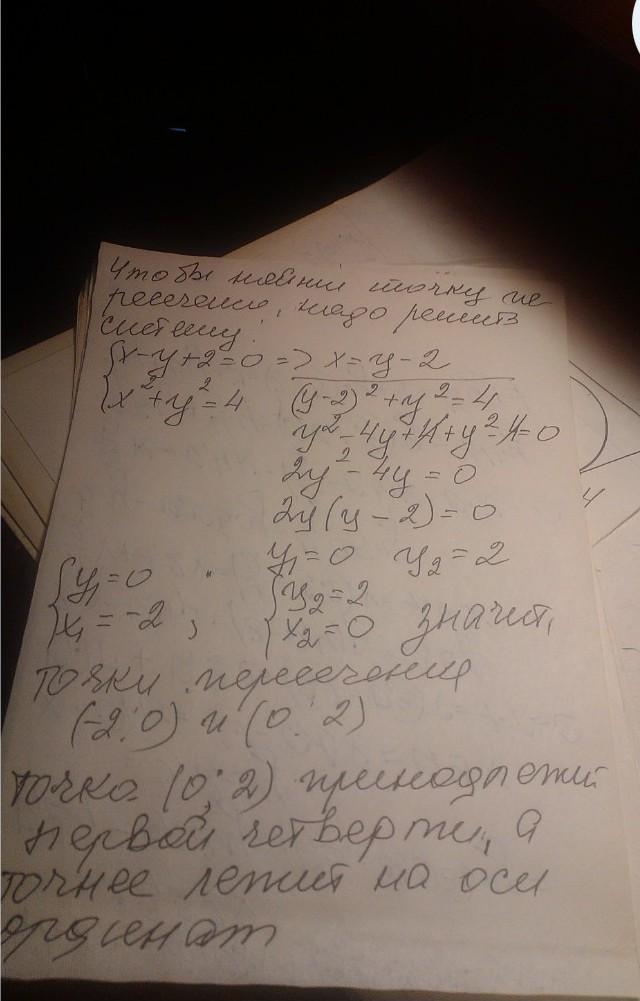 Чтобы найти точку пе
ресечения, надо решить
систему:
{x-y+2=0 => x=y-2
{x²+y²=4 (y-2)²+y²=4
y²-4y+4+y²-4=0
2y²-4y=0
2y(y-2)=0
y₁=0 y₂=2
{y₁=0 {y₂=2
{x₁=-2 ; {x₂=0 значит,
точки пересечения
(-2;0) и (0;2)
точка (0;2) принадлежит
первой четверти, а
точнее лежит на оси
ординат
4